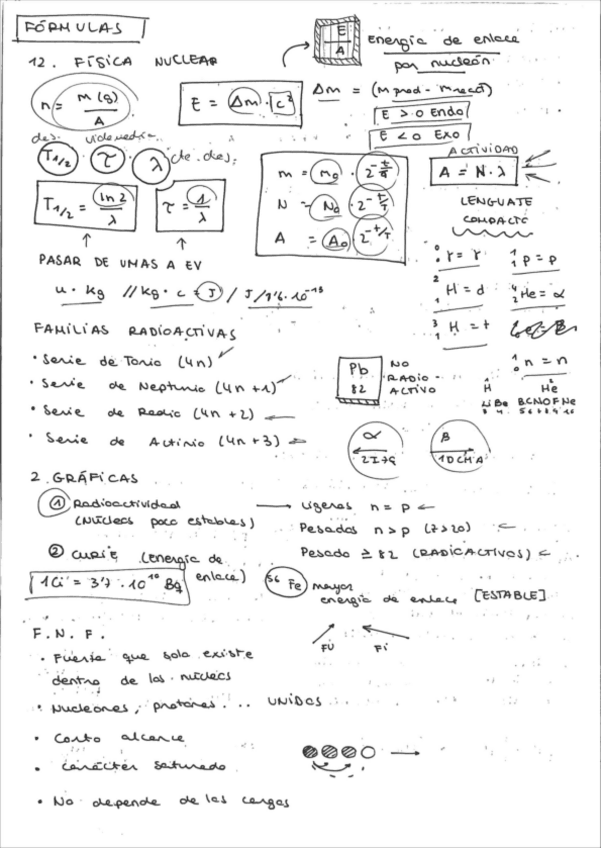 FÓRMULAS
12. FÍSICA NUCLEAR
E/A Energía de enlace
por nucleón
n = m(g)/A
E = Δm · c²
Δm = (m prod - m react)
E > 0 Endo
E < 0 Exo
des. vida media
T1/2 τ λ cte. des.
ACTIVIDAD
A = N · λ
m = m₀ · 2^(-t/T)
N = N₀ · 2^(-t/T)
A = A₀ · 2^(-t/T)
T1/2 = ln 2/λ
τ = 1/λ
LENGUATE
COMPACTO
PASAR DE UMAS A EV
u · kg // kg · c = J / J/1'6·10⁻¹⁹
⁰₀γ = γ ¹₁p = p
²₁H = d ⁴₂He = α
³₁H = t
¹₀n = n
FAMILIAS RADIOACTIVAS
· Serie de Torio (4n)
· Serie de Neptunio (4n+1)
· Serie de Radio (4n+2)
· Serie de Actinio (4n+3)
Pb
82
NO
RADIO-
ACTIVO
H He
Li Be B C N O F Ne
3 4 5 6 7 8 9 10
α
2I→Q
B
1DCHA
2. GRÁFICAS
① Radioactividad → Ligeros n = p
(Núcleos poco estables) Pesados n > p (Z>20)
② CURIE (Energía de
enlace)
Pesado ≥ 82 (RADIOACTIVOS)
1Ci = 3'7 · 10¹⁰ Bq
⁵⁶Fe mayor
energía de enlace [ESTABLE]
F.N.F.
FU Fi
· Fuerza que solo existe
dentro de los núcleos
· Nucleones, protones... UNIDOS
· Corto alcance
· Carácter saturado
· No depende de las cargas